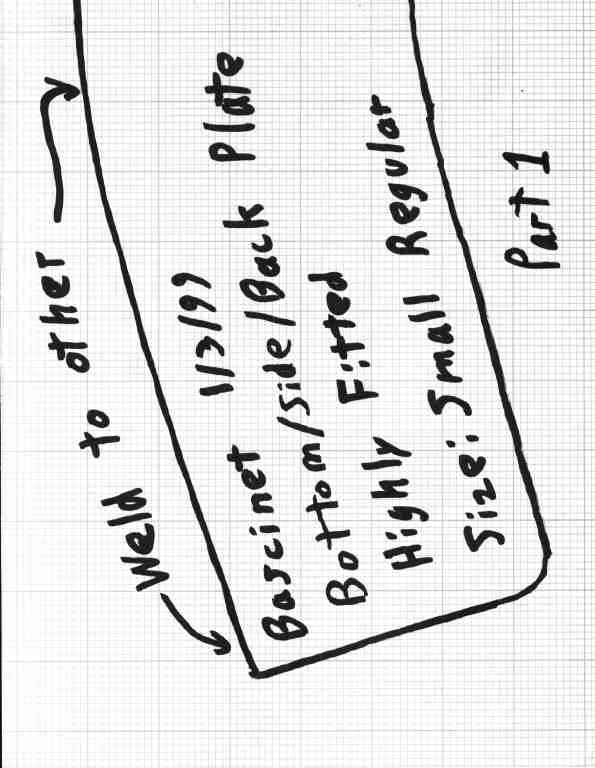 Weld to other
Bascinet 1/3/99
Bottom/side/Back Plate
Highly Fitted
Size: Small Regular
Part 1